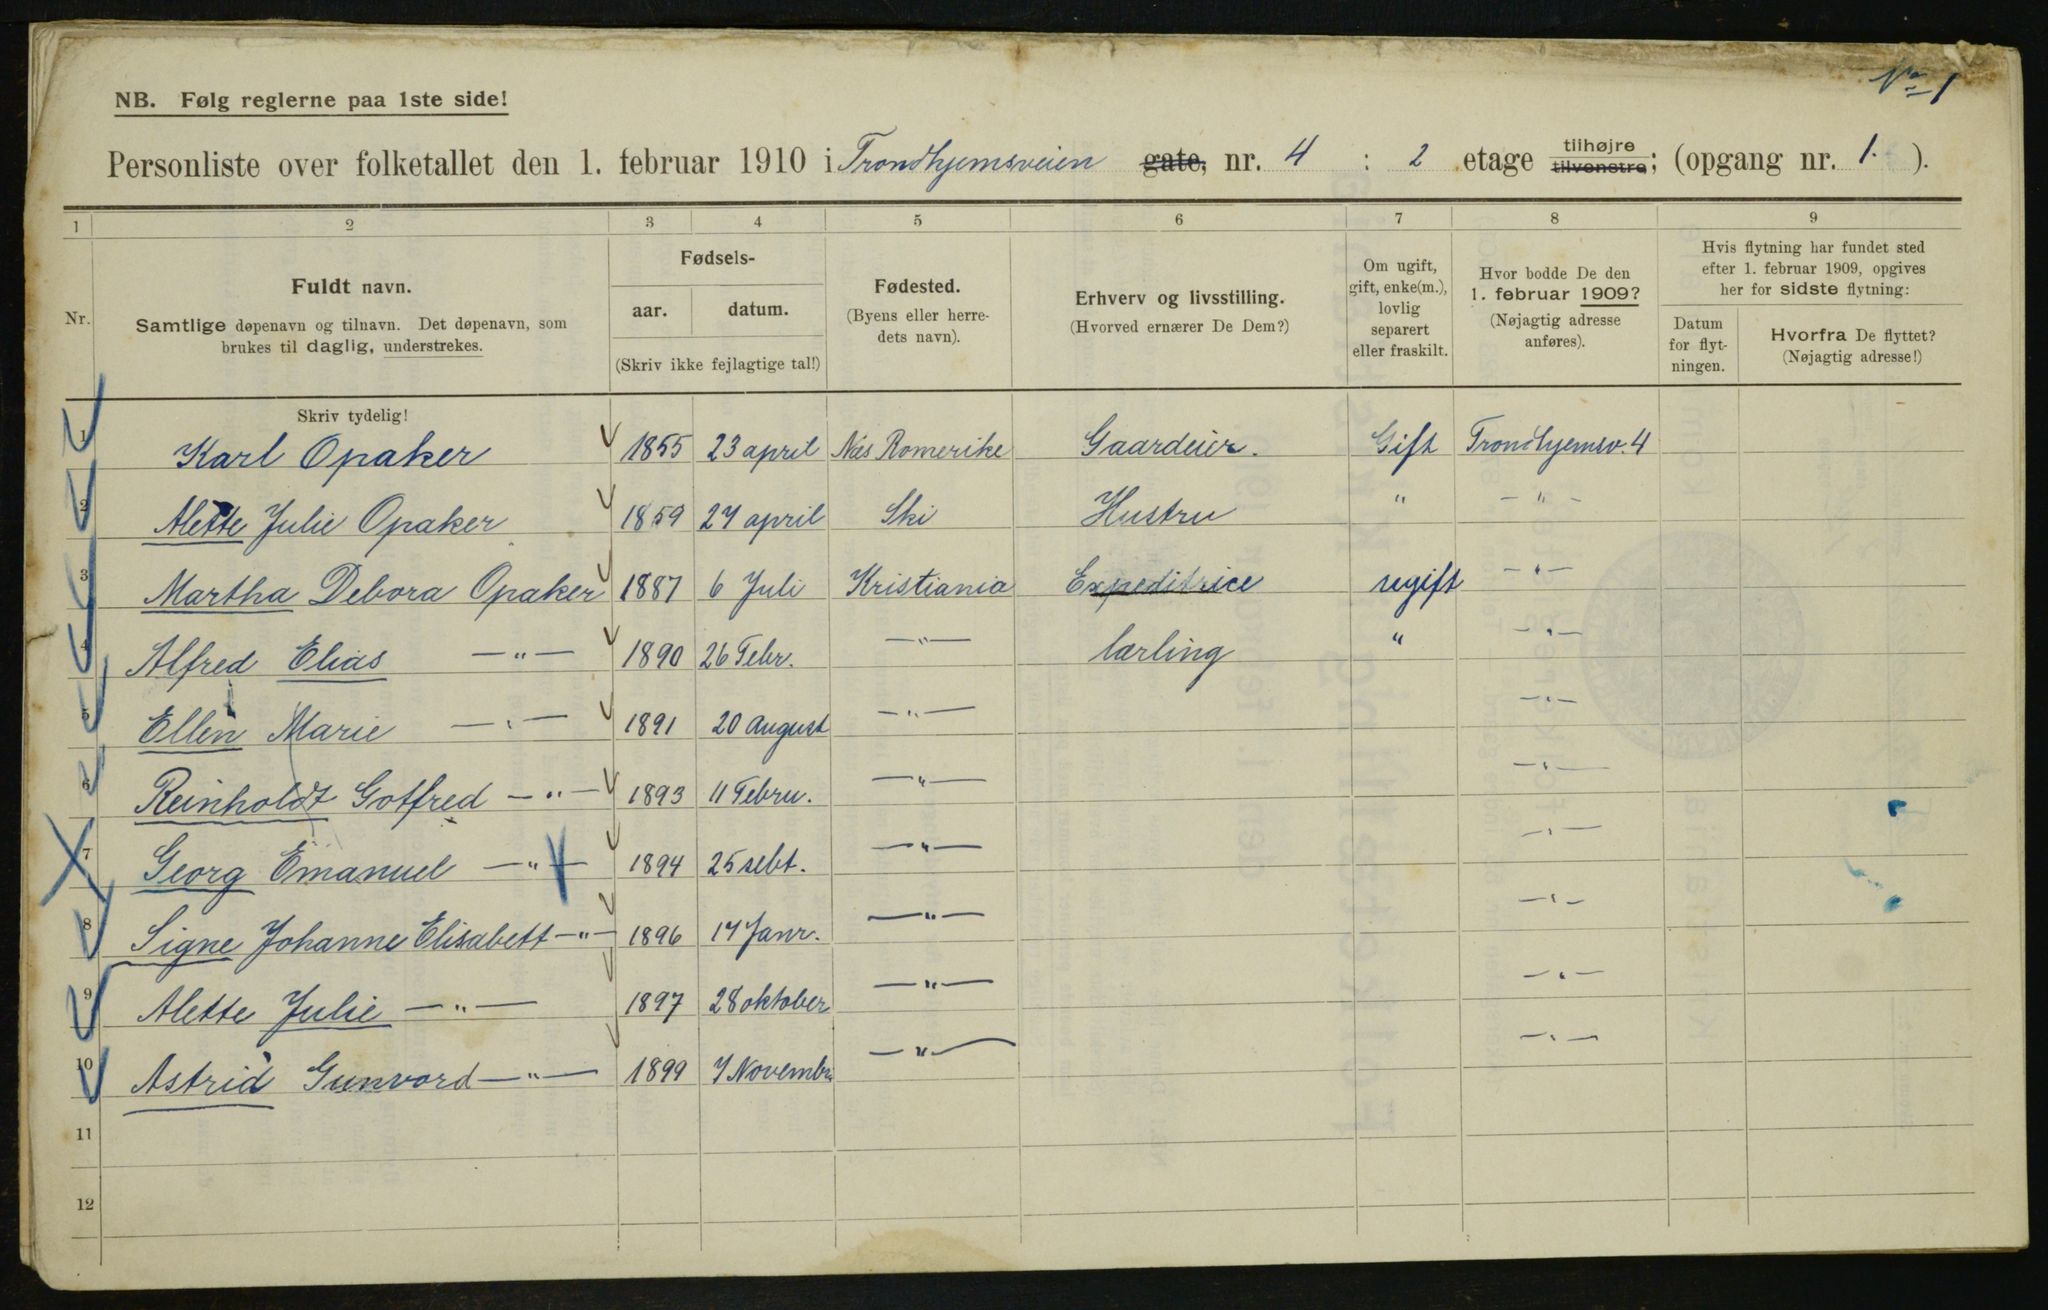 No 1
NB. Følg reglerne paa 1ste side!
Personliste over folketallet den 1. februar 1910 i Trondhjemsveien gate, nr. 4 : 2 etage tilhøjre tilvenstre; (opgang nr. 1. ).
1 2 3 4 5 6 7 8 9
Nr.
Fuldt navn.
Samtlige døpenavn og tilnavn. Det døpenavn, som
brukes til daglig, understrekes.
Fødsels-
aar. datum.
(Skriv ikke fejlagtige tal!)
Fødested.
(Byens eller herre-
dets navn).
Erhverv og livsstilling.
(Hvorved ernærer De Dem?)
Om ugift,
gift, enke(m.),
lovlig
separert
eller fraskilt.
Hvor bodde De den
1. februar 1909?
(Nøjagtig adresse
anføres).
Hvis flytning har fundet sted
efter 1. februar 1909, opgives
her for sidste flytning:
Datum
for flyt-
ningen.
Hvorfra De flyttet?
(Nøjagtig adresse!)
Skriv tydelig!
1 Karl Opaker 1855 23 april Nås Romerike Gaardeier. Gift Trondhjemsv. 4
2 Alette Julie Opaker 1859 27 april Ski Hustru " — " —
3 Martha Debora Opaker 1887 6 Juli Kristiania Expeditrice ugift — " —
4 Alfred Elias — " — 1890 26 Febr. — " — lærling " — " —
5 Ellen Marie — " — 1891 20 August — " — — " —
6 Reinholdt Gotfred — " — 1893 11 Febru. — " — — " —
7 Georg Emanuel — " — 1894 25 sebt. — " — — " —
8 Signe Johanne Elisabett — " — 1896 17 Janr. — " — — " —
9 Alette Julie — " — 1897 28 oktober — " — — " —
10 Astrid Gunvord — " — 1899 7 Novembr — " — — " —
11
12